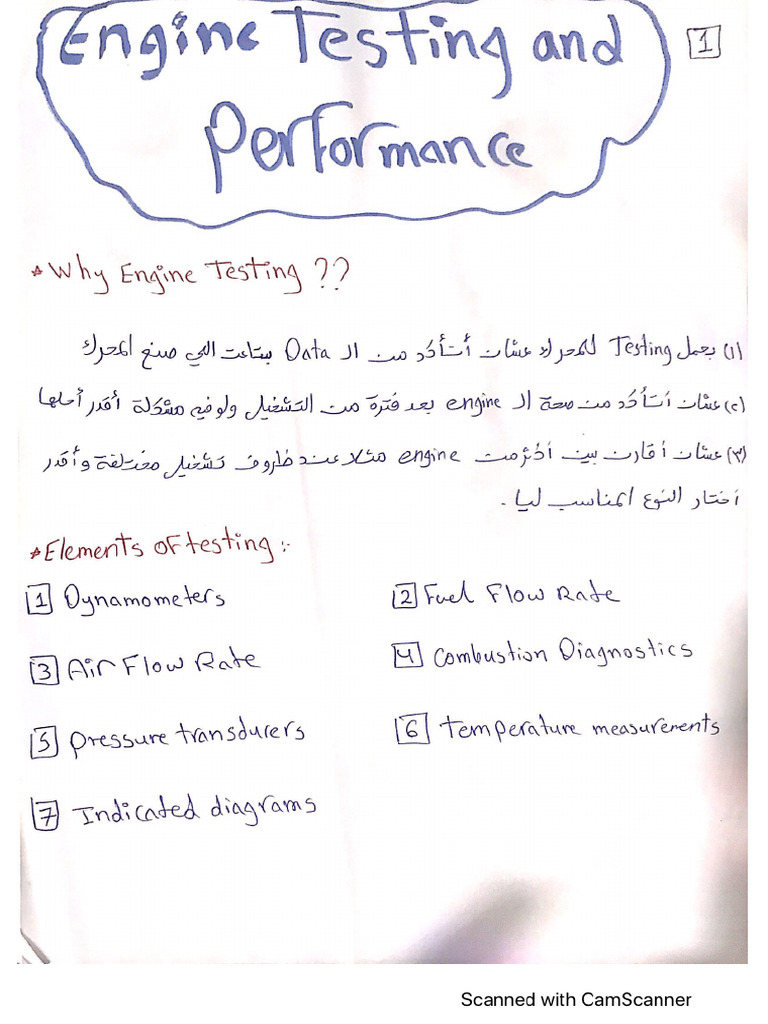 Engine Testing and
Performance
1
* Why Engine Testing ??
(1) بعمل Testing للمحرك عشان أتأكد من ال Data بتاعت اللي صنع المحرك
(2) عشان اتأكد من صحة ال engine بعد فترة من التشغيل ولو فيه مشكلة أقدر أحلها
(3) عشان أقارن بين أكثر من engine مثلا عند ظروف تشغيل مختلفة وأقدر
أختار النوع المناسب ليا .
* Elements of testing :-
1 Dynamometers
2 Fuel Flow Rate
3 Air Flow Rate
4 Combustion Diagnostics
5 pressure transducers
6 temperature measurements
7 Indicated diagrams
Scanned with CamScanner